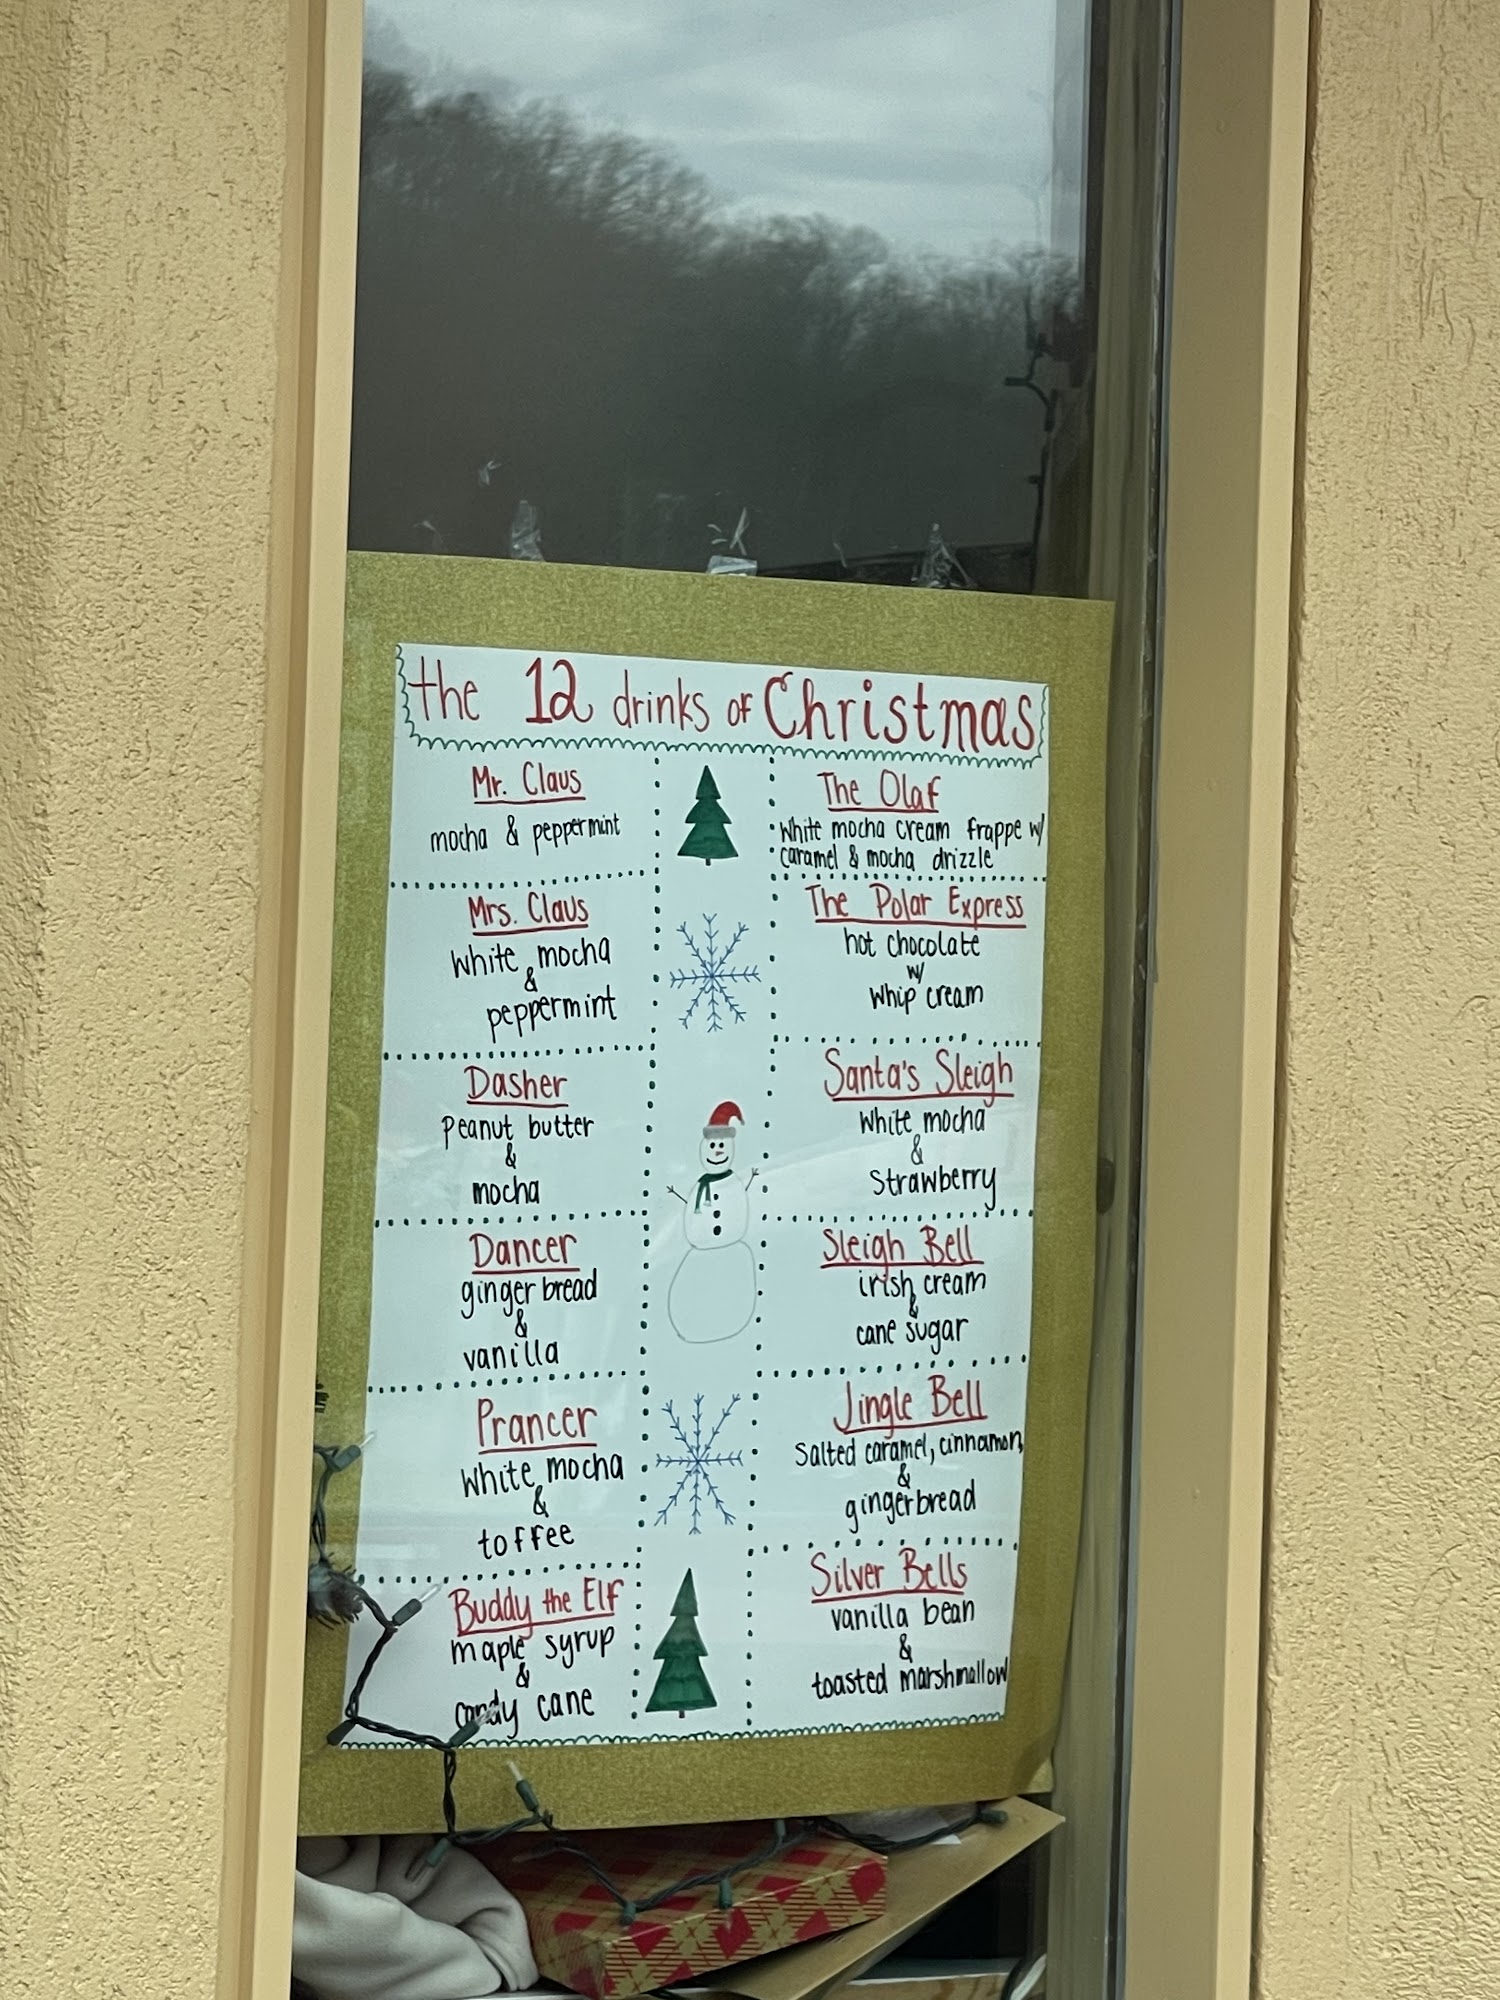 the 12 drinks of Christmas
Mr. Claus
mocha & peppermint
Mrs. Claus
white mocha
&
peppermint
Dasher
peanut butter
&
mocha
Dancer
ginger bread
&
vanilla
Prancer
white mocha
&
toffee
Buddy the Elf
maple syrup
&
candy cane
The Olaf
white mocha cream frappe w/
caramel & mocha drizzle
The Polar Express
hot chocolate
w/
whip cream
Santa's Sleigh
white mocha
&
strawberry
Sleigh Bell
irish cream
&
cane sugar
Jingle Bell
salted caramel, cinnamon,
&
gingerbread
Silver Bells
vanilla bean
&
toasted marshmallow